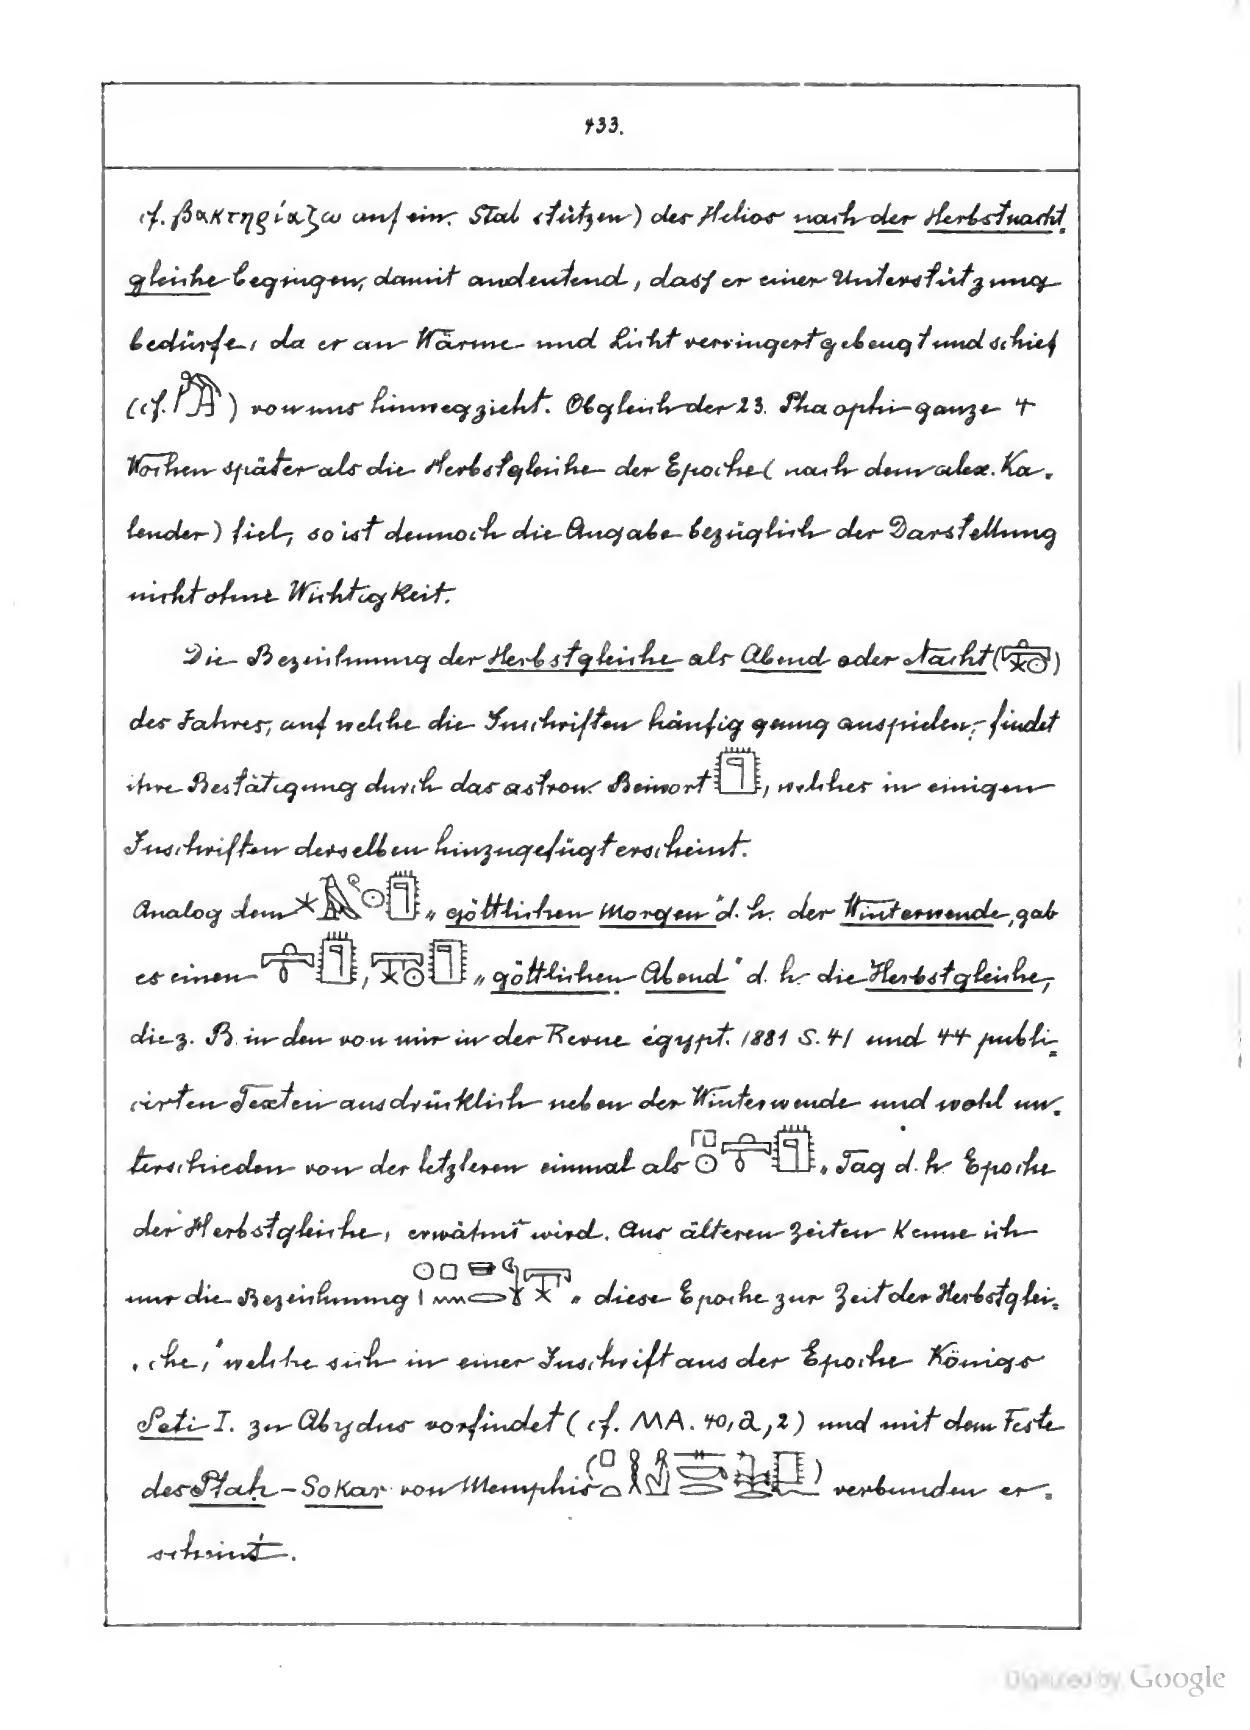 433.
cf. βακτηριάζω auf ein. Stab stützen) des Helios nach der Herbstnacht⸗
gleiche begingen, damit andeutend, dass er einer Unterstützung
bedürfe, da er an Wärme und Licht verringert gebeugt und schief
(cf. ) von uns hinwegzieht. Obgleich der 23. Phaophi ganze 4
Wochen später als die Herbstgleiche der Epoche (nach dem alex. Ka⸗
lender) fiel, so ist dennoch die Angabe bezüglich der Darstellung
nicht ohne Wichtigkeit.
Die Bezeichnung der Herbstgleiche als Abend oder Nacht ( )
des Jahres, auf welche die Inschriften häufig genug anspielen, findet
ihre Bestätigung durch das astron. Beiwort , welches in einigen
Inschriften derselben hinzugefügt erscheint.
Analog dem „göttlichen Morgen" d. h. der Winterwende, gab
es einen , „göttlichen Abend" d. h. die Herbstgleiche,
die z. B. in den von mir in der Revue égypt. 1881 S. 41 und 44 publi⸗
cirten Texten ausdrücklich neben der Winterwende und wohl un⸗
terschieden von der letzteren einmal als „Tag d. h. Epoche
der Herbstgleiche, erwähnt wird. Aus älteren Zeiten kenne ich
nur die Bezeichnung „diese Epoche zur Zeit der Herbstglei⸗
che," welche sich in einer Inschrift aus der Epoche Königs
Seti I. zu Abydus vorfindet (cf. MA. 40, a, 2) und mit dem Feste
des Ptaḥ - Sokar von Memphis ( ) verbunden er⸗
scheint.
Digitized by Google